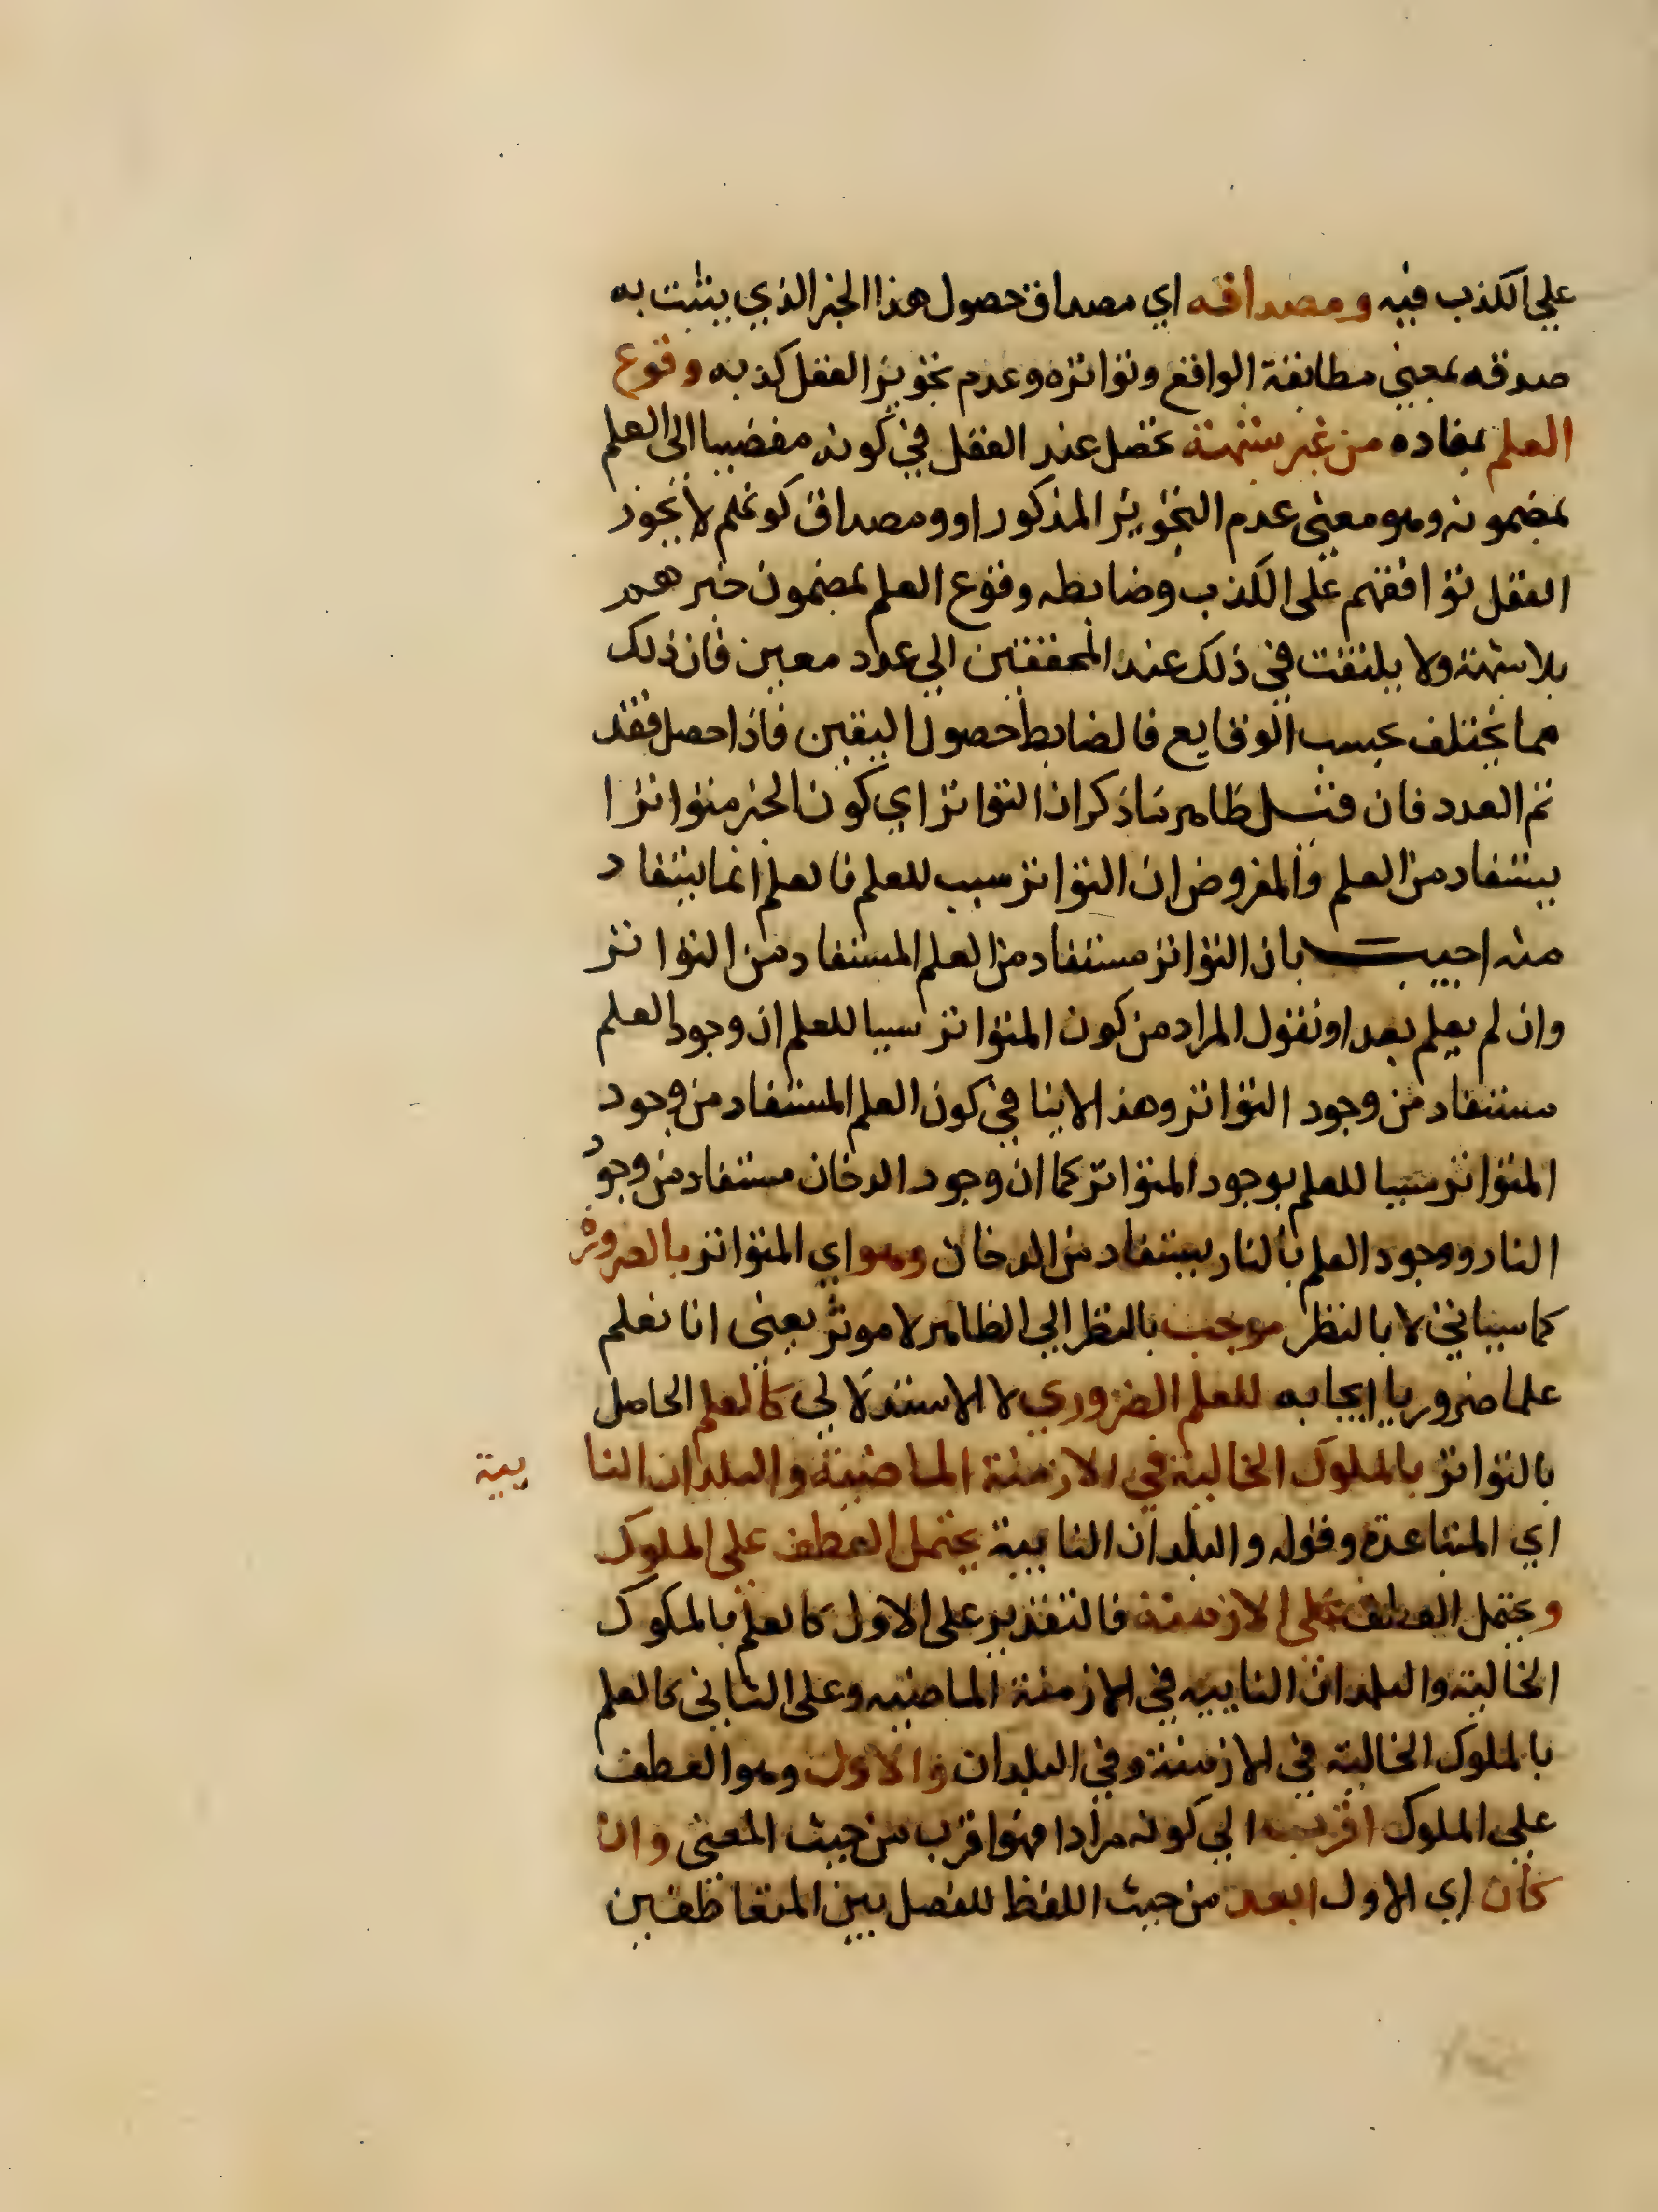 علي الكذب فيه ومصداقه اي مصداق حصول هذا الخبر الذي يثبت به
صدقه بمعني مطابقة الواقع وتواتره وعدم تجويز العقل كذبه وقوع
العلم بمفاده من غير شبهة تحصل عند العقل في كونه مفضيا الى العلم
بمضمونه وهو معنى عدم التجويز المذكور او ومصداق كونهم لا يجوز
العقل توافقهم على الكذب وضابطه وقوع العلم بمضمون خبرهم
بلا شبهة ولا يلتفت في ذلك عند المحققين الي عدد معين فان ذلك
مما يختلف بحسب الوقايع فالضابط حصول اليقين فاذا حصل فقد
تم العدد فان قيل ظاهر ما ذكر ان التواتر اي كون الخبر متواترا
يستفاد من العلم والمفروض ان التواتر سبب للعلم فالعلم انما يستفاد
منه اجيب بان التواتر مستفاد من العلم المستفاد من التواتر
وان لم يعلم بعد او نقول المراد من كون المتواتر سببا للعلم ان وجود العلم
مستفاد من وجود التواتر وهذا لا ينافي كون العلم المستفاد من وجود
المتواتر سببا للعلم بوجود المتواتر كما ان وجود الدخان مستفاد من وجود
النار ووجود العلم بالنار يستفاد من الدخان وهو اي المتواتر بالضرورة
كما سياتي لا بالنظر موجب بالنظر الي الظاهر لا موثر يعني انا نعلم
علما ضروريا ايجابه للعلم الضروري لا الاستدلالي كالعلم الحاصل
بالتواتر بالملوك الخالية في الازمنة الماضية والبلدان النا يية
اي المتباعدة وقوله والبلدان النايية يحتمل العطف على الملوك
ويحتمل العطف على الازمنة فالتقدير على الاول كالعلم بالملوك
الخالية والبلدان النايية في الازمنة الماضيه وعلى الثاني كالعلم
بالملوك الخالية في الازمنة وفي البلدان والاول وهو العطف
علي الملوك اقرب الي كونه مرادا فهو اقرب من حيث المعني وان
كان اي الاول ابعد من حيث اللفظ للفصل بين المتعاطفين